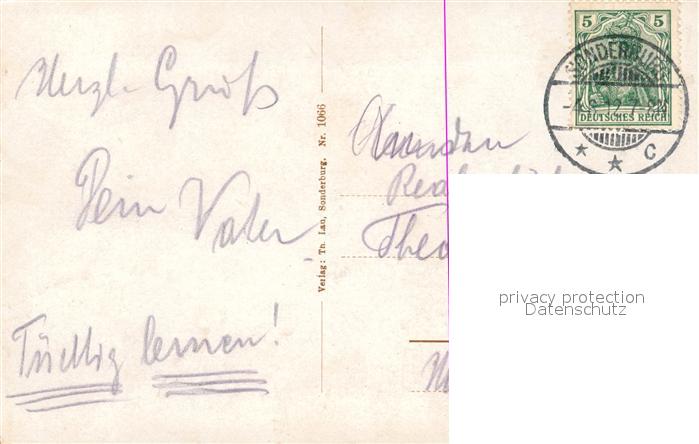 Herzl. Gruß
Dein Vater
Tüchtig lernen!
Verlag: Th. Lau, Sonderburg. Nr. 1066
5 5
DEUTSCHES REICH
SONDERBURG
C
Theo
privacy protection
Datenschutz